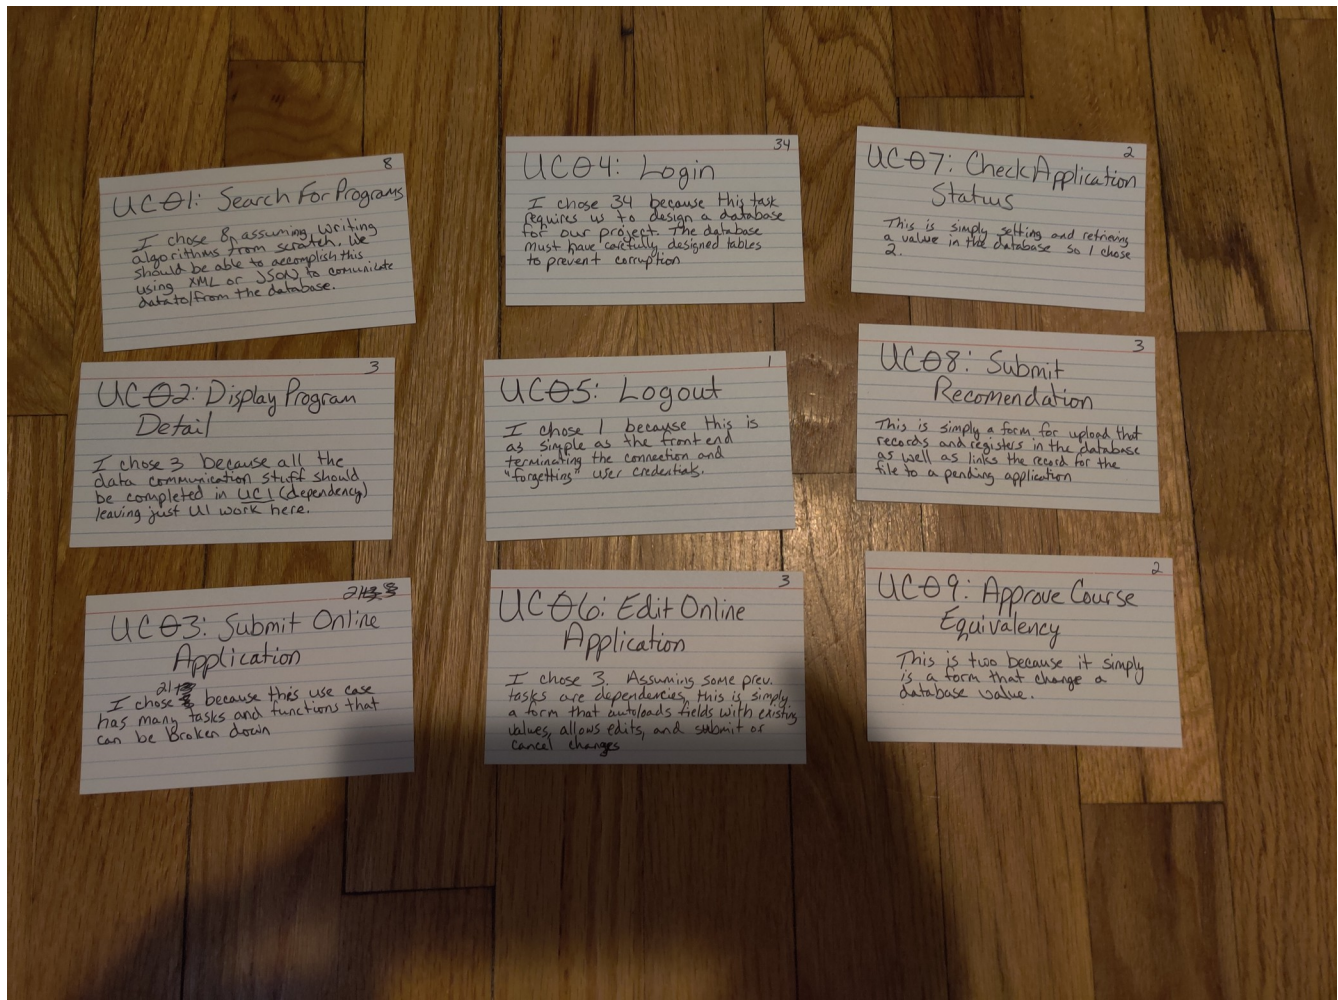 8
UC01: Search For Programs
I chose 8, assuming writing
algorithms from scratch. We
should be able to accomplish this
using XML or JSON, to comunicate
data to/from the database.
3
UC02: Display Program
Detail
I chose 3 because all the
data communication stuff should
be completed in UC1 (dependency)
leaving just UI work here.
21
UC03: Submit Online
Application
21
I chose because this use case
has many tasks and functions that
can be broken down
34
UC04: Login
I chose 34 because this task
requires us to design a database
for our project. The database
must have carefully designed tables
to prevent corruption
1
UC05: Logout
I chose 1 because this is
as simple as the front end
terminating the connection and
"forgetting" user credentials.
3
UC06: Edit Online
Application
I chose 3. Assuming some prev.
tasks are dependencies, this is simply
a form that autoloads fields with existing
values, allows edits, and submit or
cancel changes
2
UC07: Check Application
Status
This is simply setting and retrieving
a value in the database so I chose
2.
3
UC08: Submit
Recomendation
This is simply a form for upload that
records and registers in the database
as well as links the record for the
file to a pending application
2
UC09: Approve Course
Equivalency
This is two because it simply
is a form that change a
database value.